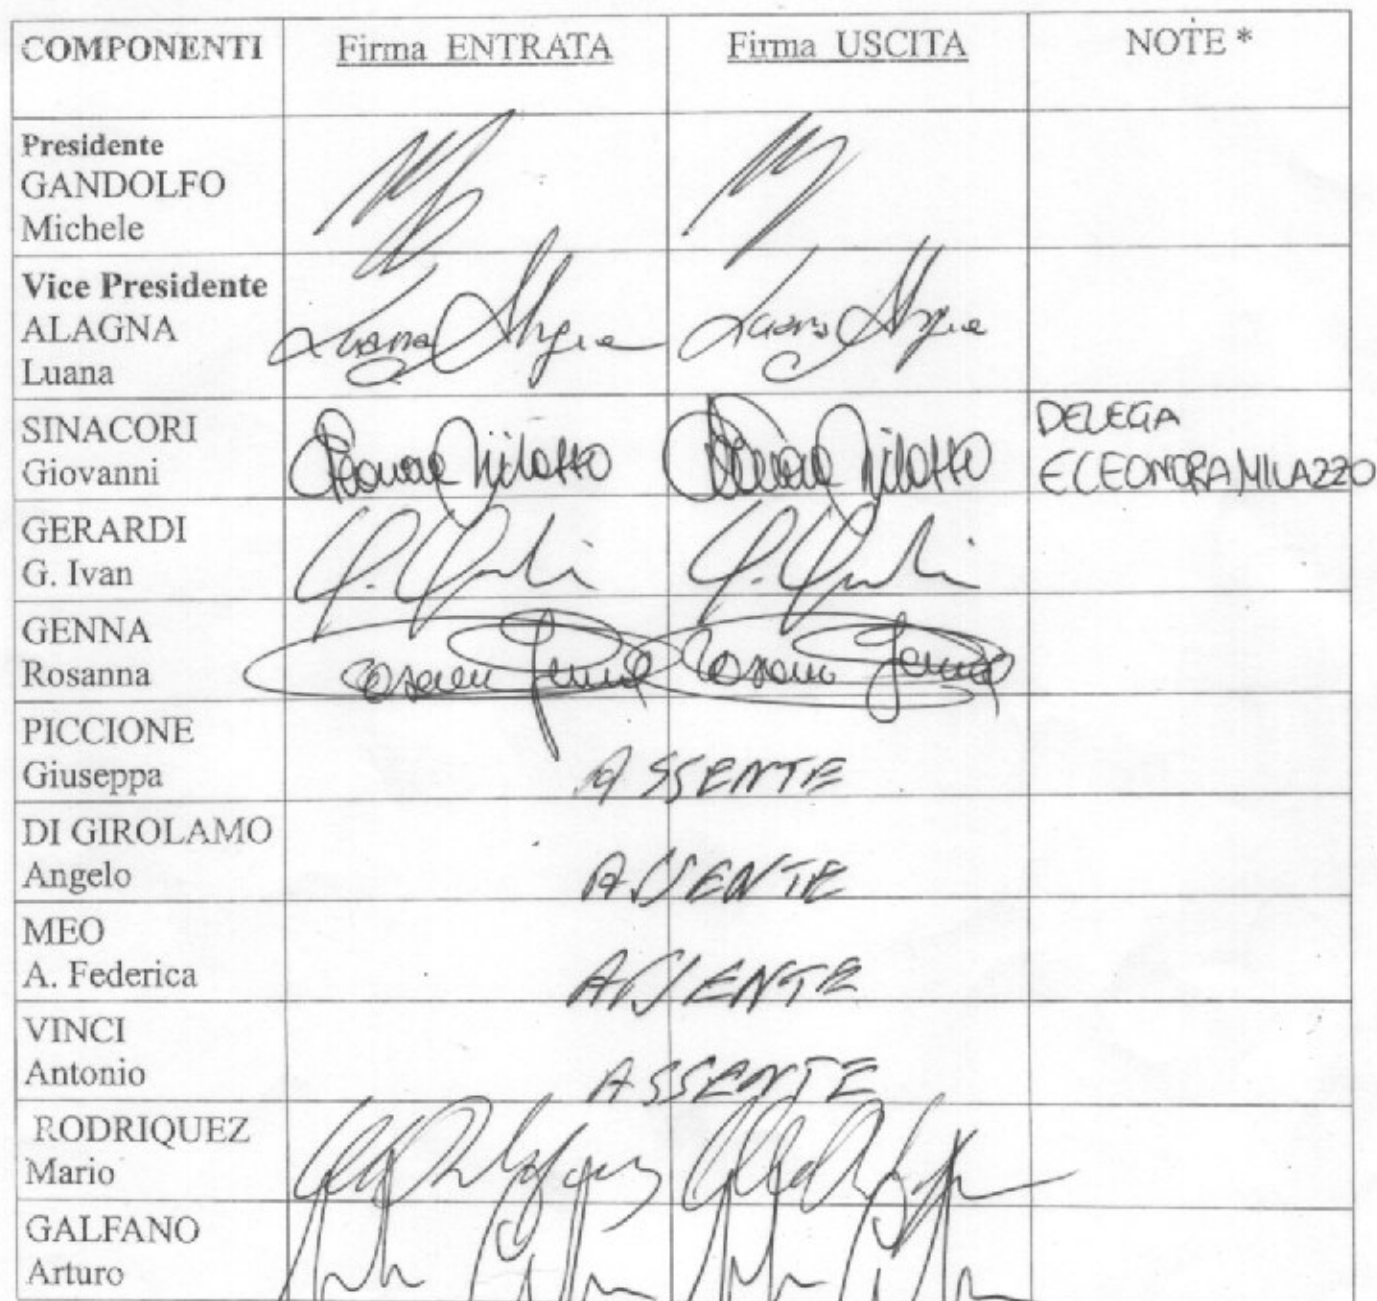 COMPONENTI Firma ENTRATA Firma USCITA NOTE *
Presidente
GANDOLFO
Michele
Vice Presidente
ALAGNA
Luana
Luana Alagna Luana Alagna
SINACORI DELEGA
Giovanni Eleonora Milazzo Eleonora Milazzo ELEONORA MILAZZO
GERARDI
G. Ivan
GENNA
Rosanna Rosanna Genna Rosanna Genna
PICCIONE
Giuseppa ASSENTE
DI GIROLAMO
Angelo ASSENTE
MEO
A. Federica ASSENTE
VINCI
Antonio ASSENTE
RODRIQUEZ
Mario
GALFANO
Arturo